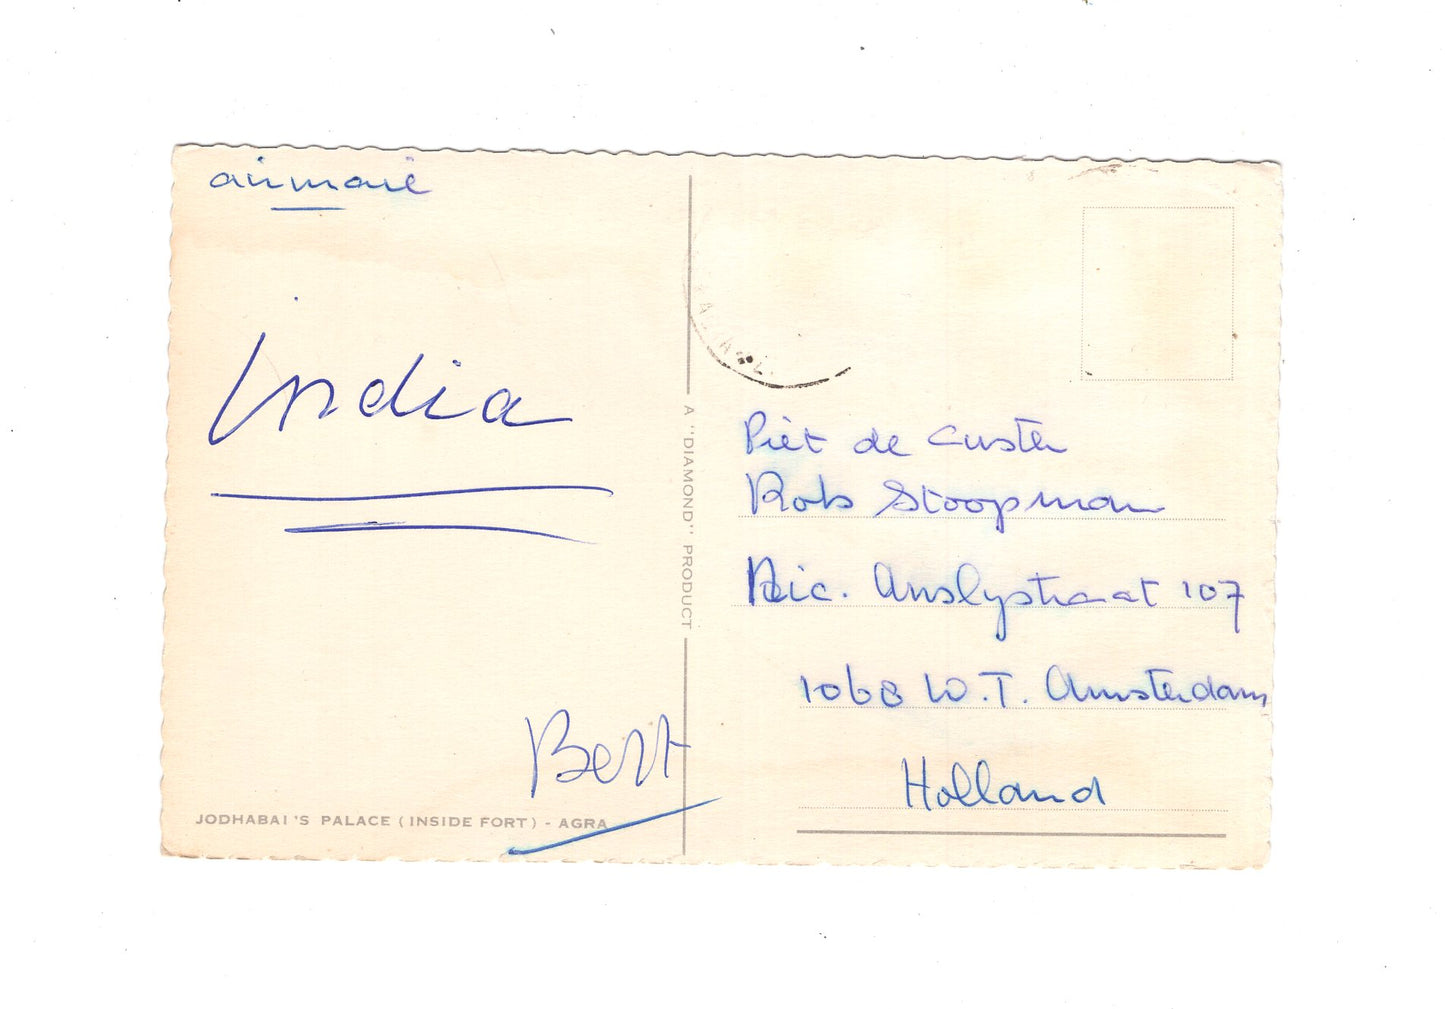 airmail
India
Bert
JODHABAI'S PALACE (INSIDE FORT) - AGRA
A "DIAMOND" PRODUCT
Piet de Custer
Rob Stoopman
Nic. Anslijstraat 107
1068 W.T. Amsterdam
Holland